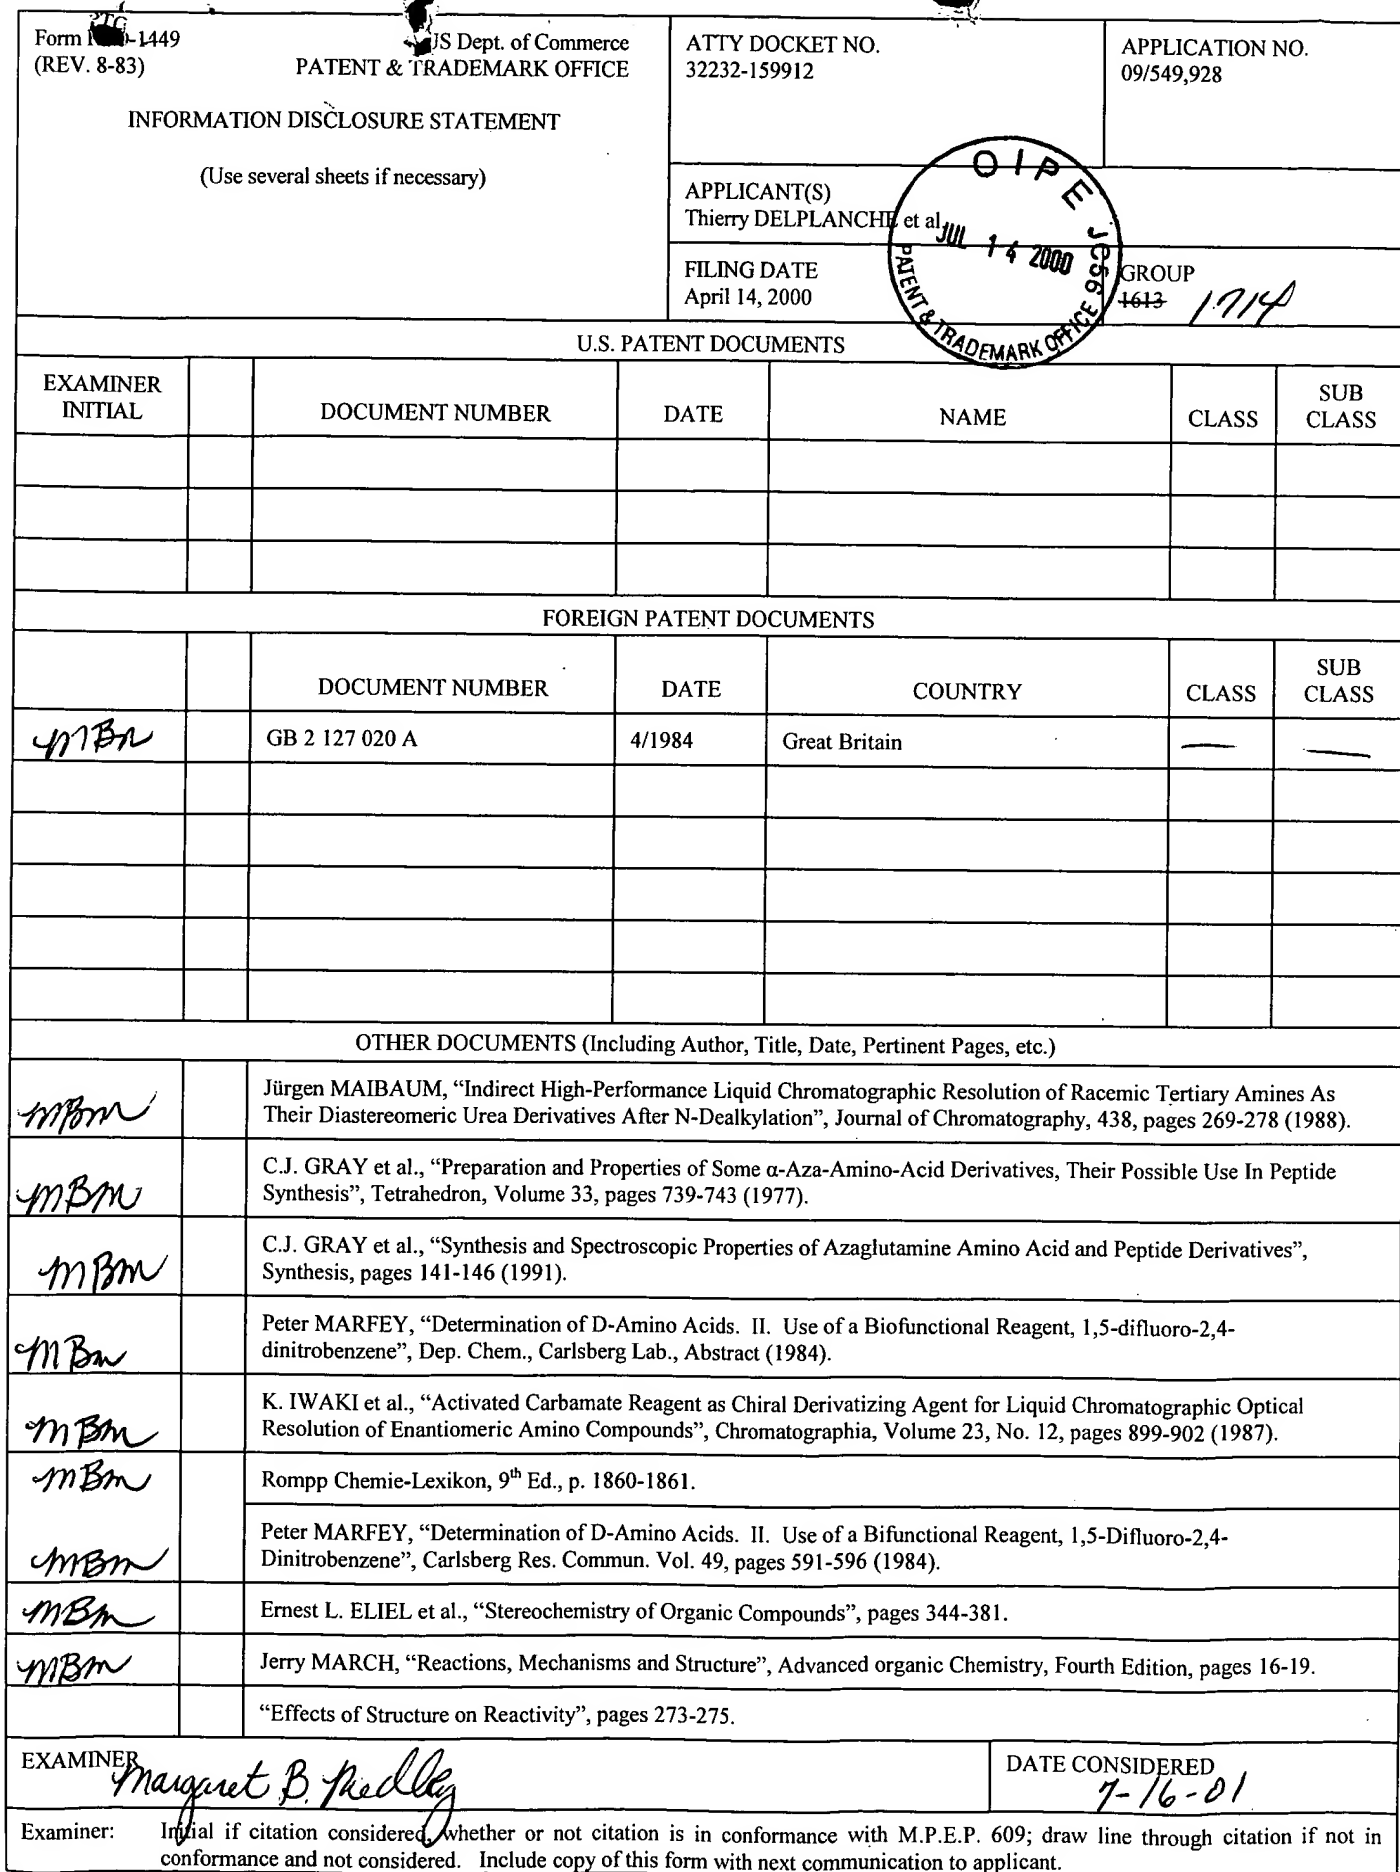 PTO-1449
Form
(REV. 8-83)
US Dept. of Commerce
PATENT & TRADEMARK OFFICE
INFORMATION DISCLOSURE STATEMENT
(Use several sheets if necessary)
ATTY DOCKET NO.
32232-159912
APPLICATION NO.
09/549,928
APPLICANT(S)
Thierry DELPLANCHE et al.
FILING DATE
April 14, 2000
GROUP
1613 1714
OIPE JC56
JUL 14 2000
PATENT & TRADEMARK OFFICE
U.S. PATENT DOCUMENTS
EXAMINER INITIAL
DOCUMENT NUMBER
DATE
NAME
CLASS
SUB CLASS
FOREIGN PATENT DOCUMENTS
DOCUMENT NUMBER
DATE
COUNTRY
CLASS
SUB CLASS
MBM GB 2 127 020 A 4/1984 Great Britain — —
OTHER DOCUMENTS (Including Author, Title, Date, Pertinent Pages, etc.)
MBM Jürgen MAIBAUM, “Indirect High-Performance Liquid Chromatographic Resolution of Racemic Tertiary Amines As
Their Diastereomeric Urea Derivatives After N-Dealkylation”, Journal of Chromatography, 438, pages 269-278 (1988).
MBM C.J. GRAY et al., “Preparation and Properties of Some α-Aza-Amino-Acid Derivatives, Their Possible Use In Peptide
Synthesis”, Tetrahedron, Volume 33, pages 739-743 (1977).
MBM C.J. GRAY et al., “Synthesis and Spectroscopic Properties of Azaglutamine Amino Acid and Peptide Derivatives”,
Synthesis, pages 141-146 (1991).
MBM Peter MARFEY, “Determination of D-Amino Acids. II. Use of a Biofunctional Reagent, 1,5-difluoro-2,4-
dinitrobenzene”, Dep. Chem., Carlsberg Lab., Abstract (1984).
MBM K. IWAKI et al., “Activated Carbamate Reagent as Chiral Derivatizing Agent for Liquid Chromatographic Optical
Resolution of Enantiomeric Amino Compounds”, Chromatographia, Volume 23, No. 12, pages 899-902 (1987).
MBM Rompp Chemie-Lexikon, 9th Ed., p. 1860-1861.
MBM Peter MARFEY, “Determination of D-Amino Acids. II. Use of a Bifunctional Reagent, 1,5-Difluoro-2,4-
Dinitrobenzene”, Carlsberg Res. Commun. Vol. 49, pages 591-596 (1984).
MBM Ernest L. ELIEL et al., “Stereochemistry of Organic Compounds”, pages 344-381.
MBM Jerry MARCH, “Reactions, Mechanisms and Structure”, Advanced organic Chemistry, Fourth Edition, pages 16-19.
“Effects of Structure on Reactivity”, pages 273-275.
EXAMINER Margaret B. Medley
DATE CONSIDERED
7-16-01
Examiner: Initial if citation considered, whether or not citation is in conformance with M.P.E.P. 609; draw line through citation if not in
conformance and not considered. Include copy of this form with next communication to applicant.